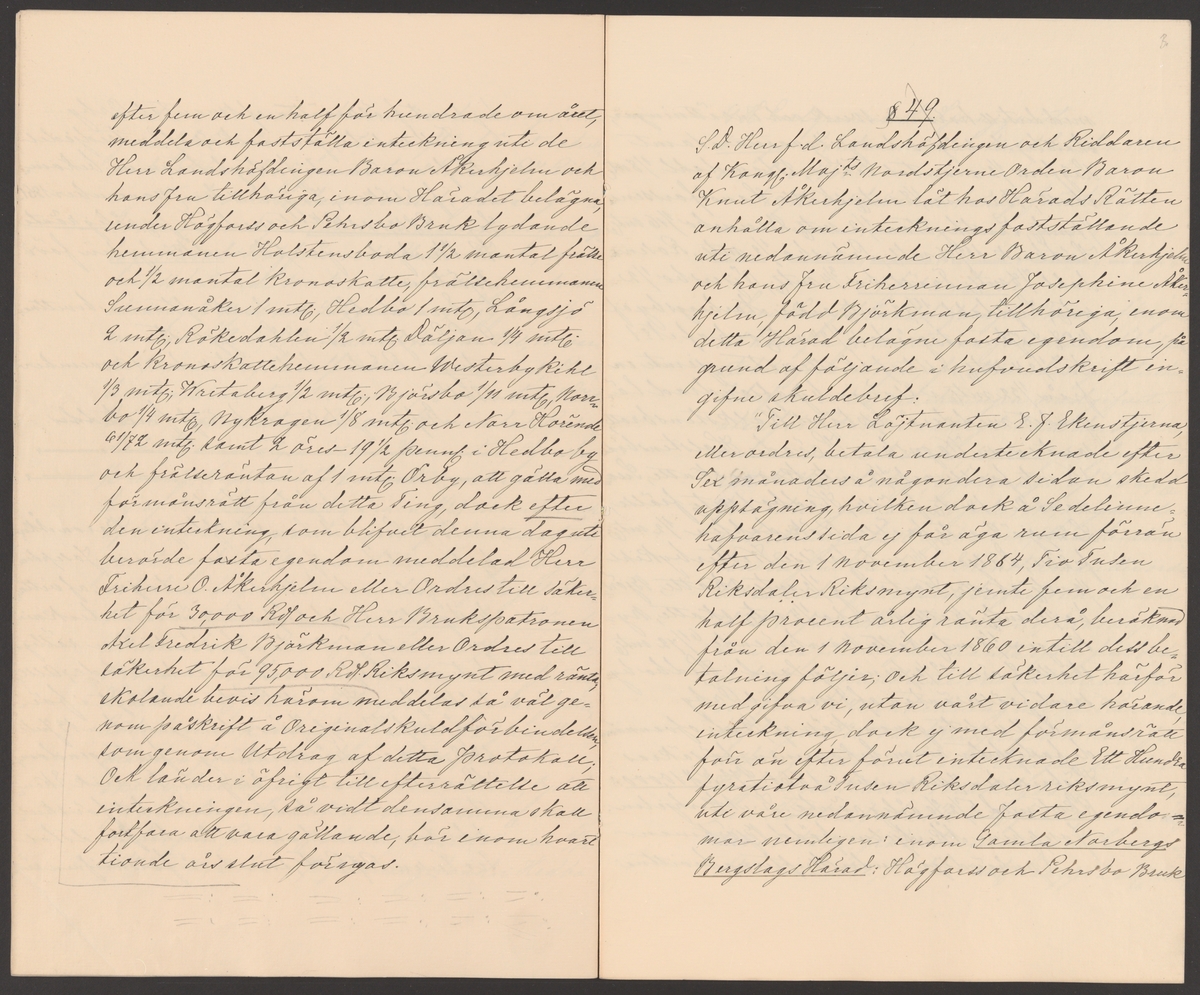 efter fem och en half för hundrade om året,
meddela och fastställa inteckning uti de
Herr Landshöfdingen Baron Åkerhjelm och
hans fru tillhöriga, inom Häradet belägna,
under Högforss och Pehrsbo Bruk lydande
hemmanen Holstensboda 1 1/2 mantal frälse
och 1/2 mantal kronoskatte, frälsehemmanen
Sunnanåker 1 mtl, Hedbo 1 mtl, Långsjö
2 mtl, Rökedahlen 1/2 mtl Däljan 1/4 mtl
och kronoskattehemmanen Westerbykihl
1/3 mtl, Writaberg 1/2 mtl, Björsbo 1/11 mtl, Norr-
bo 1/4 mtl, Nykrogen 1/8 mtl och Norr Hörende
61/72 mtl samt 2 öres 19 1/2 penng i Hedbo by
och frälseräntan af 1 mtl Örby, att gälla med
förmånsrätt från detta Ting, dock efter
den inteckning, som blifvit denna dag uti
berörde fasta egendom meddelad Herr
Friherre O. Åkerhjelm eller Ordres till säker-
het för 30,000 Rd och Herr Brukspatronen
Axel Fredrik Björkman eller Ordres till
säkerhet för 95,000 Rd Riksmynt med ränta,
skolande bevis härom meddelas så väl ge-
nom påskrift å Originalskuldförbindelsen,
som genom Utdrag af detta Protokoll;
Och länder i öfrigt till efterrättelse att
inteckningen, så vidt densamma skall
fortfara att vara gällande, bör inom hvart
tionde års slut förnyas.
§ 49.
S.D. Herr f.d. Landshöfdingen och Riddaren
af Kongl. Majts Nordstjerne Orden Baron
Knut Åkerhjelm lät hos Härads Rätten
anhålla om intecknings fastställande
uti nedannämnde Herr Baron Åkerhjelm
och hans fru Friherrinnan Josephine Åker-
hjelm, född Björkman, tillhöriga, inom
detta Härad belägne fasta egendom, på
grund af följande i hufvudskrift in-
gifne skuldebref:
"Till Herr Löjtnanten E. J. Ekenstjerna,
eller ordres, betala undertecknade efter
Sex månaders å någondera sidan skedd
uppsägning, hvilken dock å Sedelinne-
hafvarens sida ej får äga rum förrän
efter den 1 November 1864, Tio Tusen
Riksdaler Riksmynt, jemte fem och en
half procent årlig ränta derå, beräknad
från den 1 November 1860 intill dess be-
talning följer; och till säkerhet härför
medgifva vi, utan vårt vidare hörande,
inteckning dock ej med förmånsrätt
förr än efter förut intecknade Ett Hundra
fyratiotvå Tusen Riksdaler riksmynt,
uti våre nedannämnde fasta egendo-
mar nemligen: inom Gamla Norbergs
Bergslags Härad: Högforss och Pehrsbo Bruk